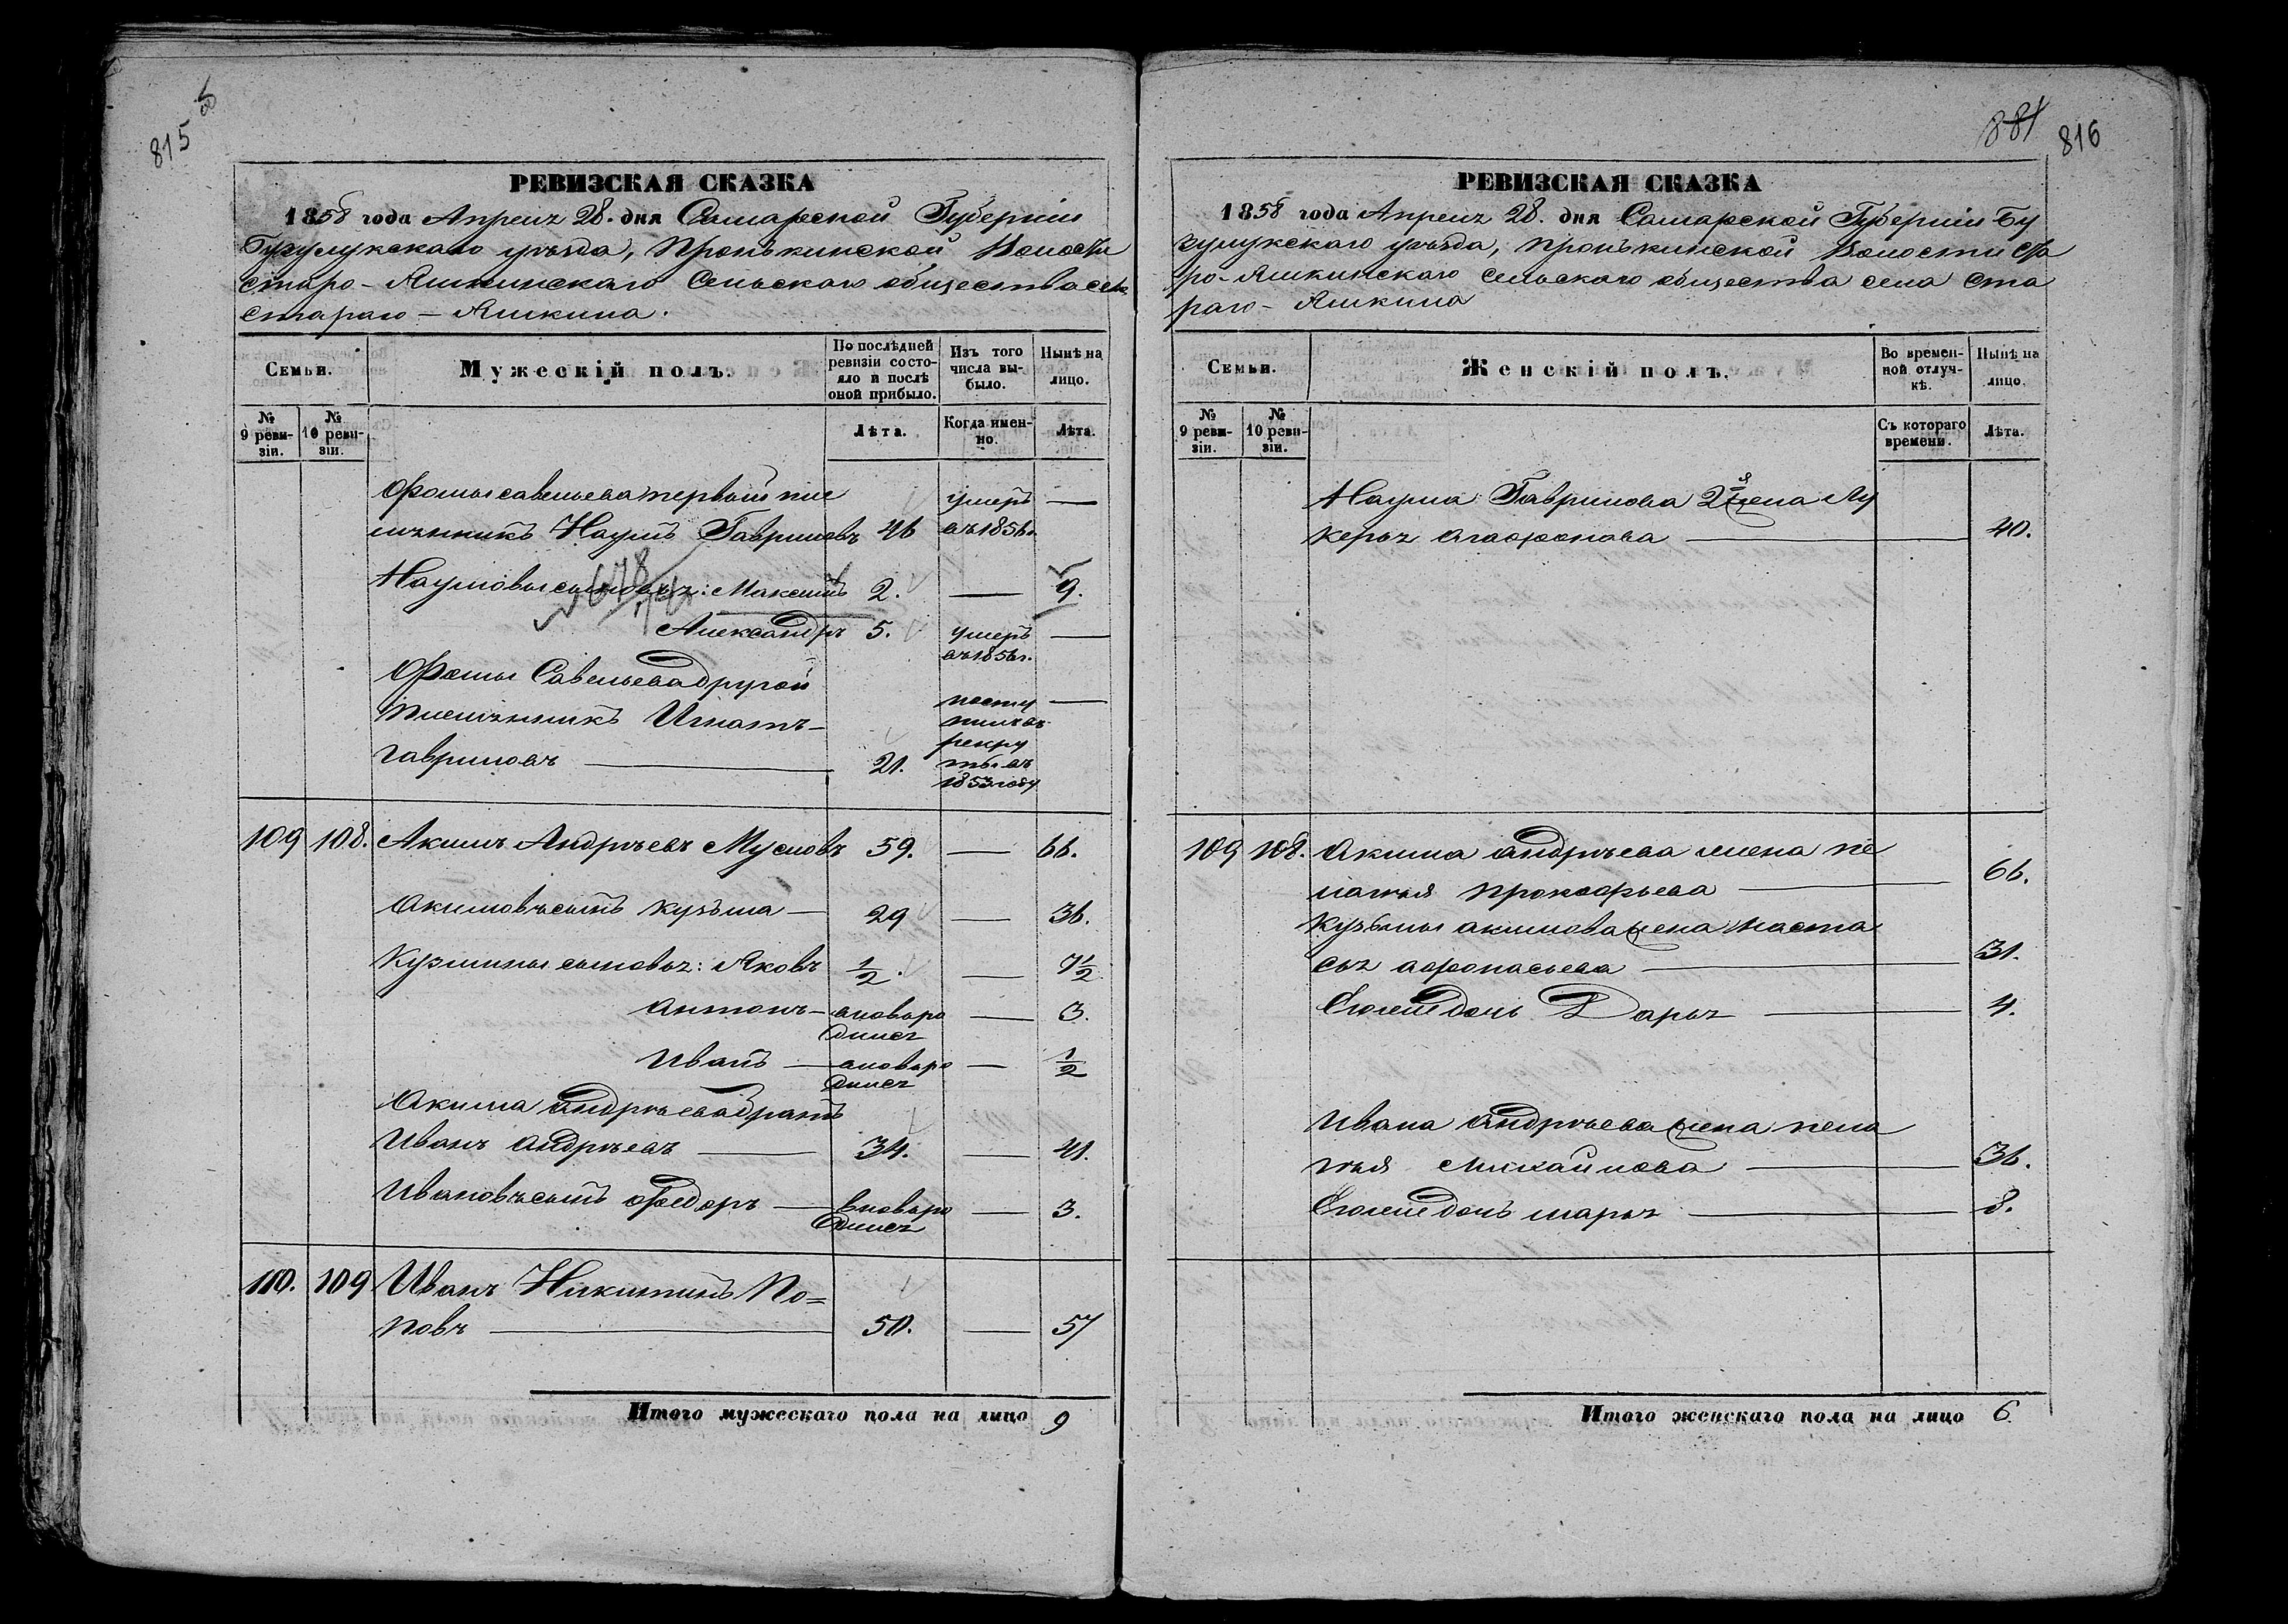 815 об
РЕВИЗСКАЯ СКАЗКА
1858 года Апреля 28. дня Самарской Губерніи
Бузулукскаго уѣзда, Пронькинской Волости
Старо-Яшкинскаго Сельскаго общества села
Стараго-Яшкина.
Семьи.
Мужескій полъ.
По послѣдней ревизіи состояло и послѣ оной прибыло.
Изъ того числа выбыло.
Нынѣ на лицо.
№ 9 ревизіи.
№ 10 ревизіи.
Лѣта.
Когда именно.
Лѣта.
Фомы савельева первый пле умеръ —
мянникъ Наумъ Гавриловъ 46 въ 1856г.
Наумовы сыновья: Максимъ 2. — 9.
678
Александръ 5. умеръ —
въ 1856г.
Фомы Савельева другой
племянникъ Игнатъ посту —
пилъ въ
рекру
Гавриловъ — 21. ты въ
1853 году
109 108. Акимъ Андрѣевъ Мусловъ 59. — 66.
Акимовъ сынъ кузьма — 29 — 36.
Кузмины сыновья: Яковъ 1/2. — 7 1/2
антонъ — вновьро — 3.
дился
Иванъ — вновьро — 1/2
дился
Акима андрѣева братъ
Иванъ андрѣевъ — 34. — 41.
Ивановъ сынъ федоръ — вновьро — 3.
дился
110. 109 Иванъ Никитинъ По=
повъ — 50. — 57
Итого мужескаго пола на лицо 9
881 816
РЕВИЗСКАЯ СКАЗКА
1858 года Апреля 28. дня Самарской Губерніи Бу
зулукскаго уѣзда, Пронькинской Волости Ста
ро-Яшкинскаго сельскаго общества села Ста
раго-Яшкина
Семьи.
Женскій полъ.
Во временной отлучкѣ.
Нынѣ на лицо.
№ 9 ревизіи.
№ 10 ревизіи.
Съ котораго времени.
Лѣта.
Наума Гаврилова 2я жена Лу
керья агафонова — 40.
109 108. Акима андрѣева жена пе
лагея прокофьева — 66.
Кузьмы акимова жена наста
сья афонасьева — 31.
Его же дочь Дарья — 4.
Ивана андрѣева жена пела
гея михайлова — 36.
Его же дочь марья — 8.
Итого женскаго пола на лицо 6